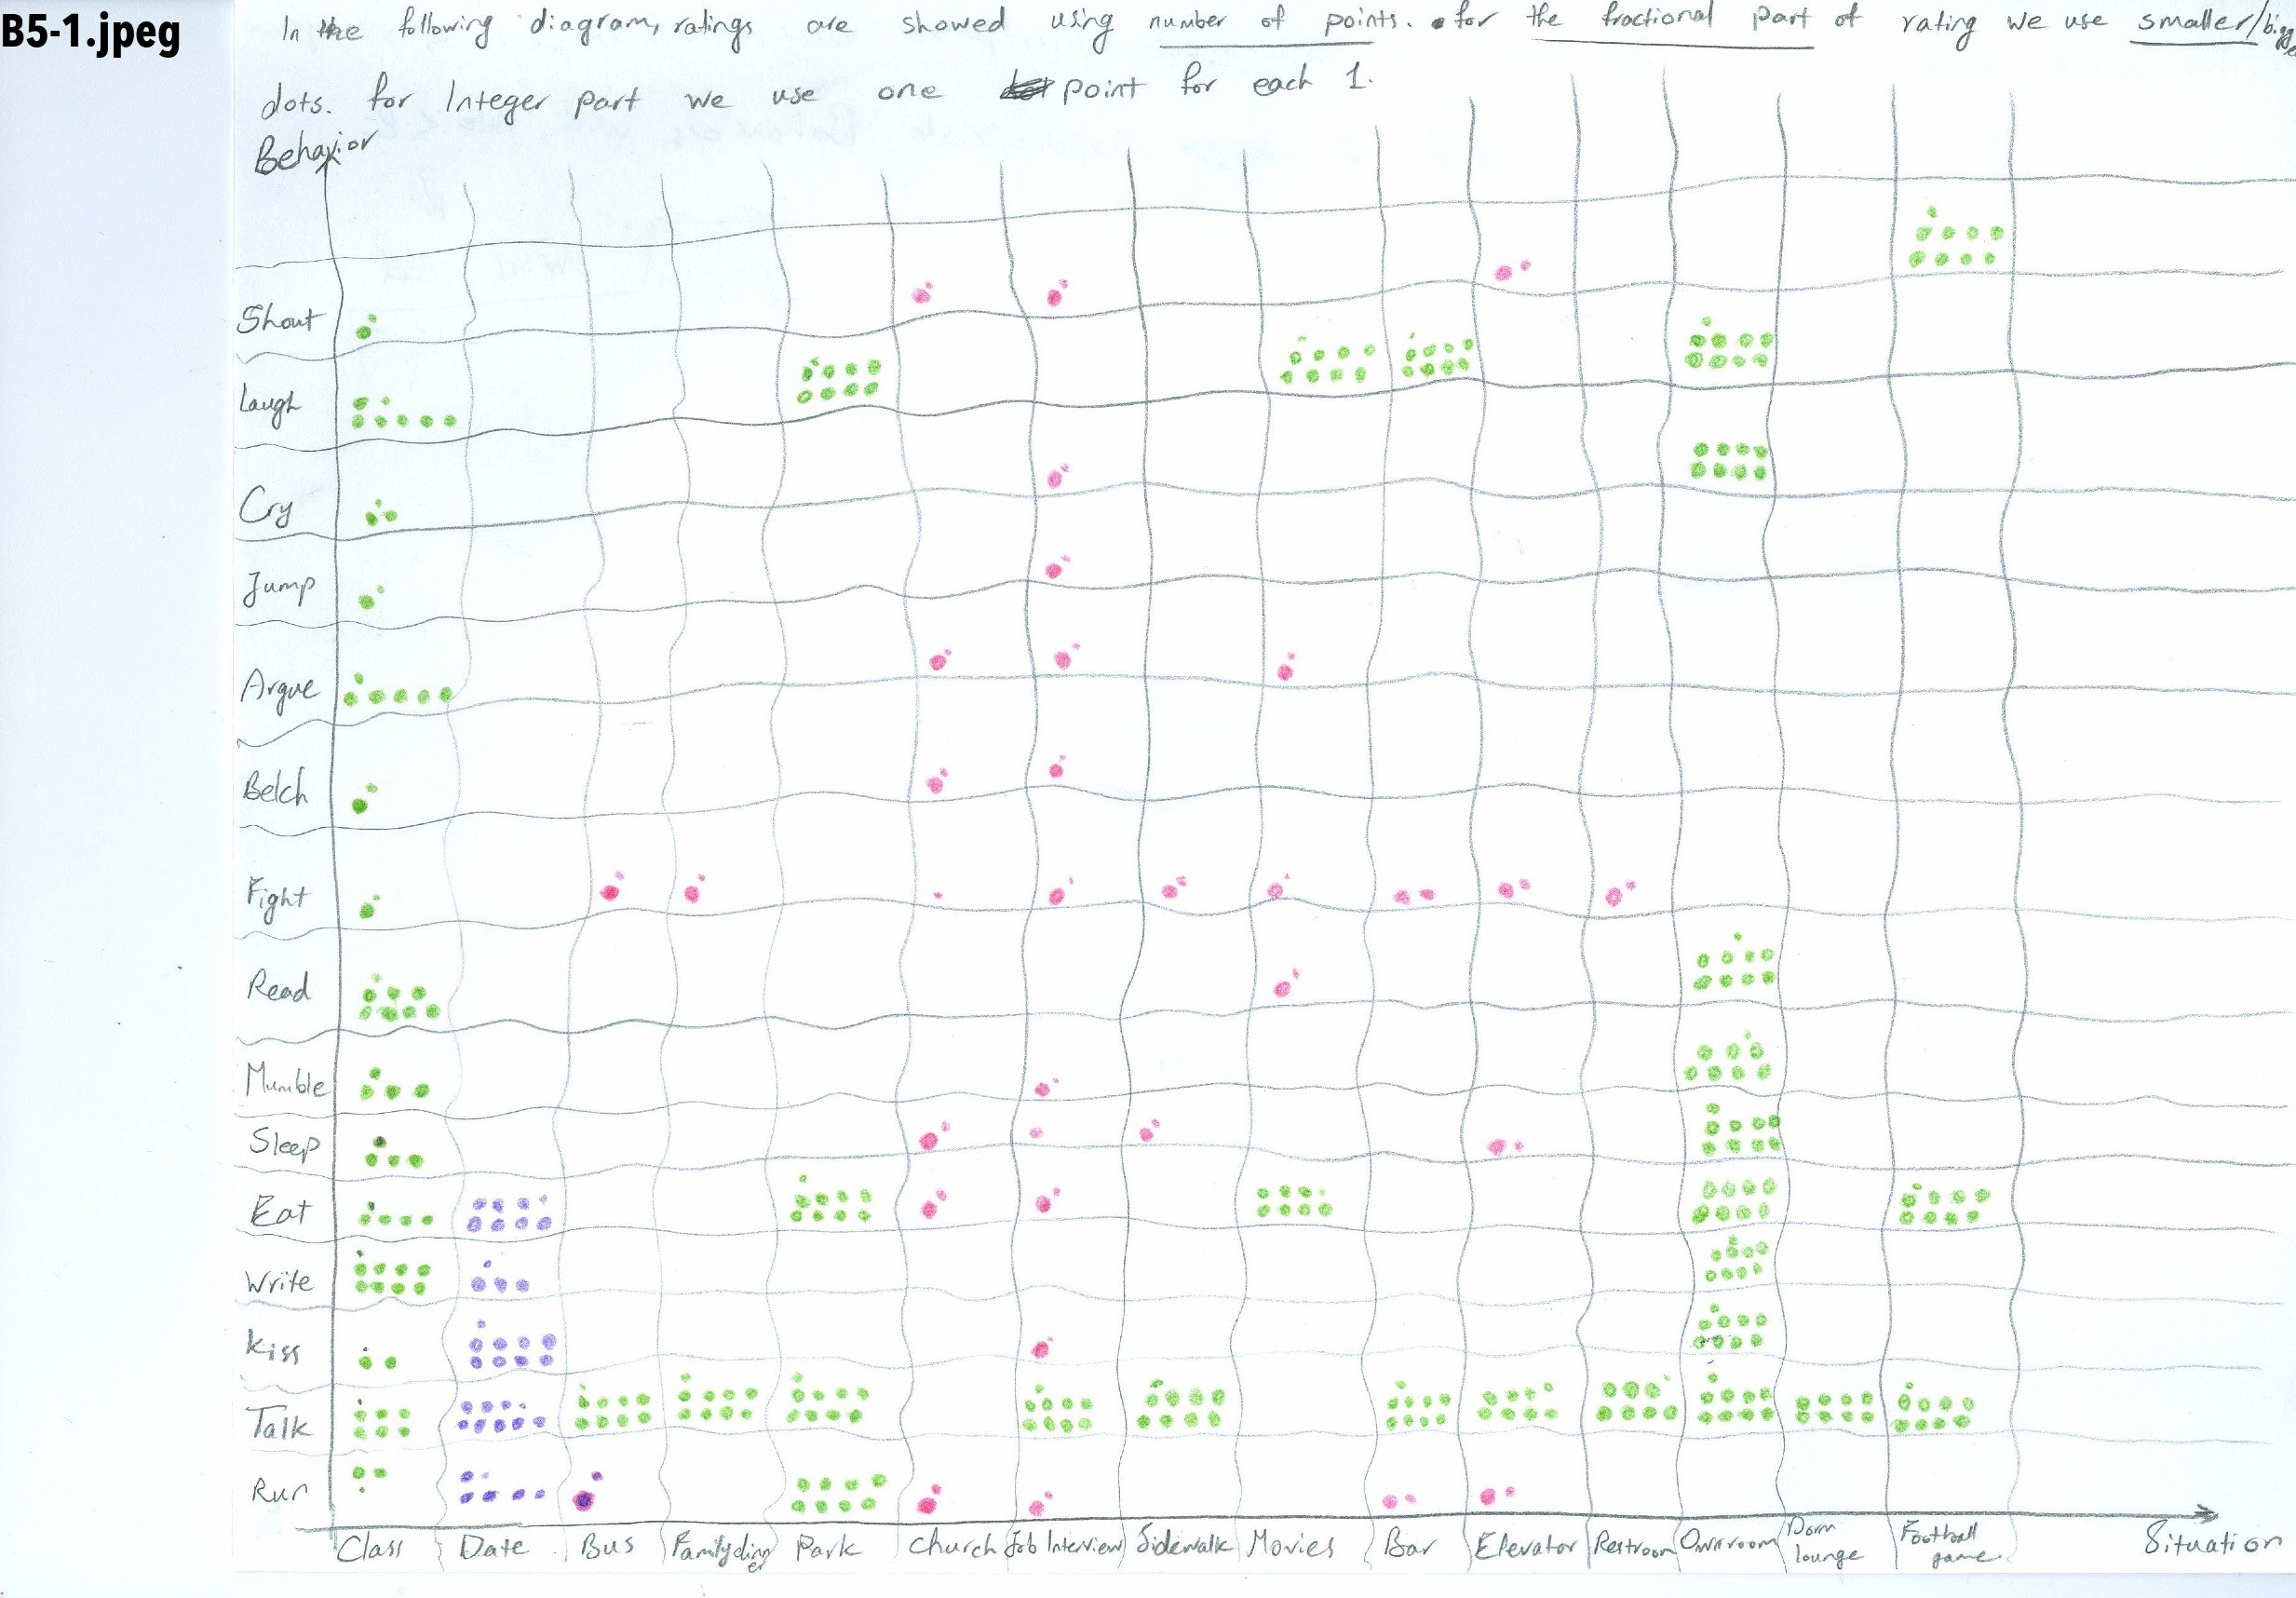 B5-1.jpeg
In the following diagram, ratings are showed using number of points. for the fractional part of rating we use smaller/bigge
dots. for Integer part we use one point for each 1.
Behavior
Shout
Laugh
Cry
Jump
Argue
Belch
Fight
Read
Mumble
Sleep
Eat
Write
Kiss
Talk
Run
Class Date Bus Family dinner Park Church Job Interview Sidewalk Movies Bar Elevator Restroom Ownroom Dorm lounge Football game Situation